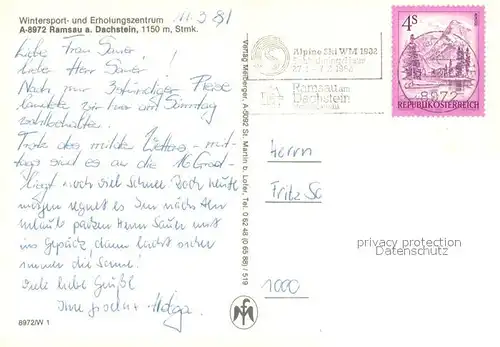 Wintersport- und Erholungszentrum
A-8972 Ramsau a. Dachstein, 1150 m, Stmk.
11.3.81
Liebe Frau
liebe Herr
Nach nur 3stündiger Reise
landete wir hier am Samstag
wohlbehalten.
Trotz des milden Wetters - mit-
tags sind es an die 16 Grad -
liegt noch viel Schnee. Doch heute
morgen regnet es. Den nächsten
Urlaub packen Herr mit
ins Gepäck, dann lacht sicher
immer die Sonne!
Viele liebe Grüße
Ihre
8972/W 1
Verlag Meiberger, A-5092 St. Martin b. Lofer, Tel. 0 62 48 (0 65 88) / 519
Alpine Ski WM 1982
Ramsau am
Dachstein
4S
REPUBLIK ÖSTERREICH
8972
Herrn
Fritz
1000
privacy protection
Datenschutz